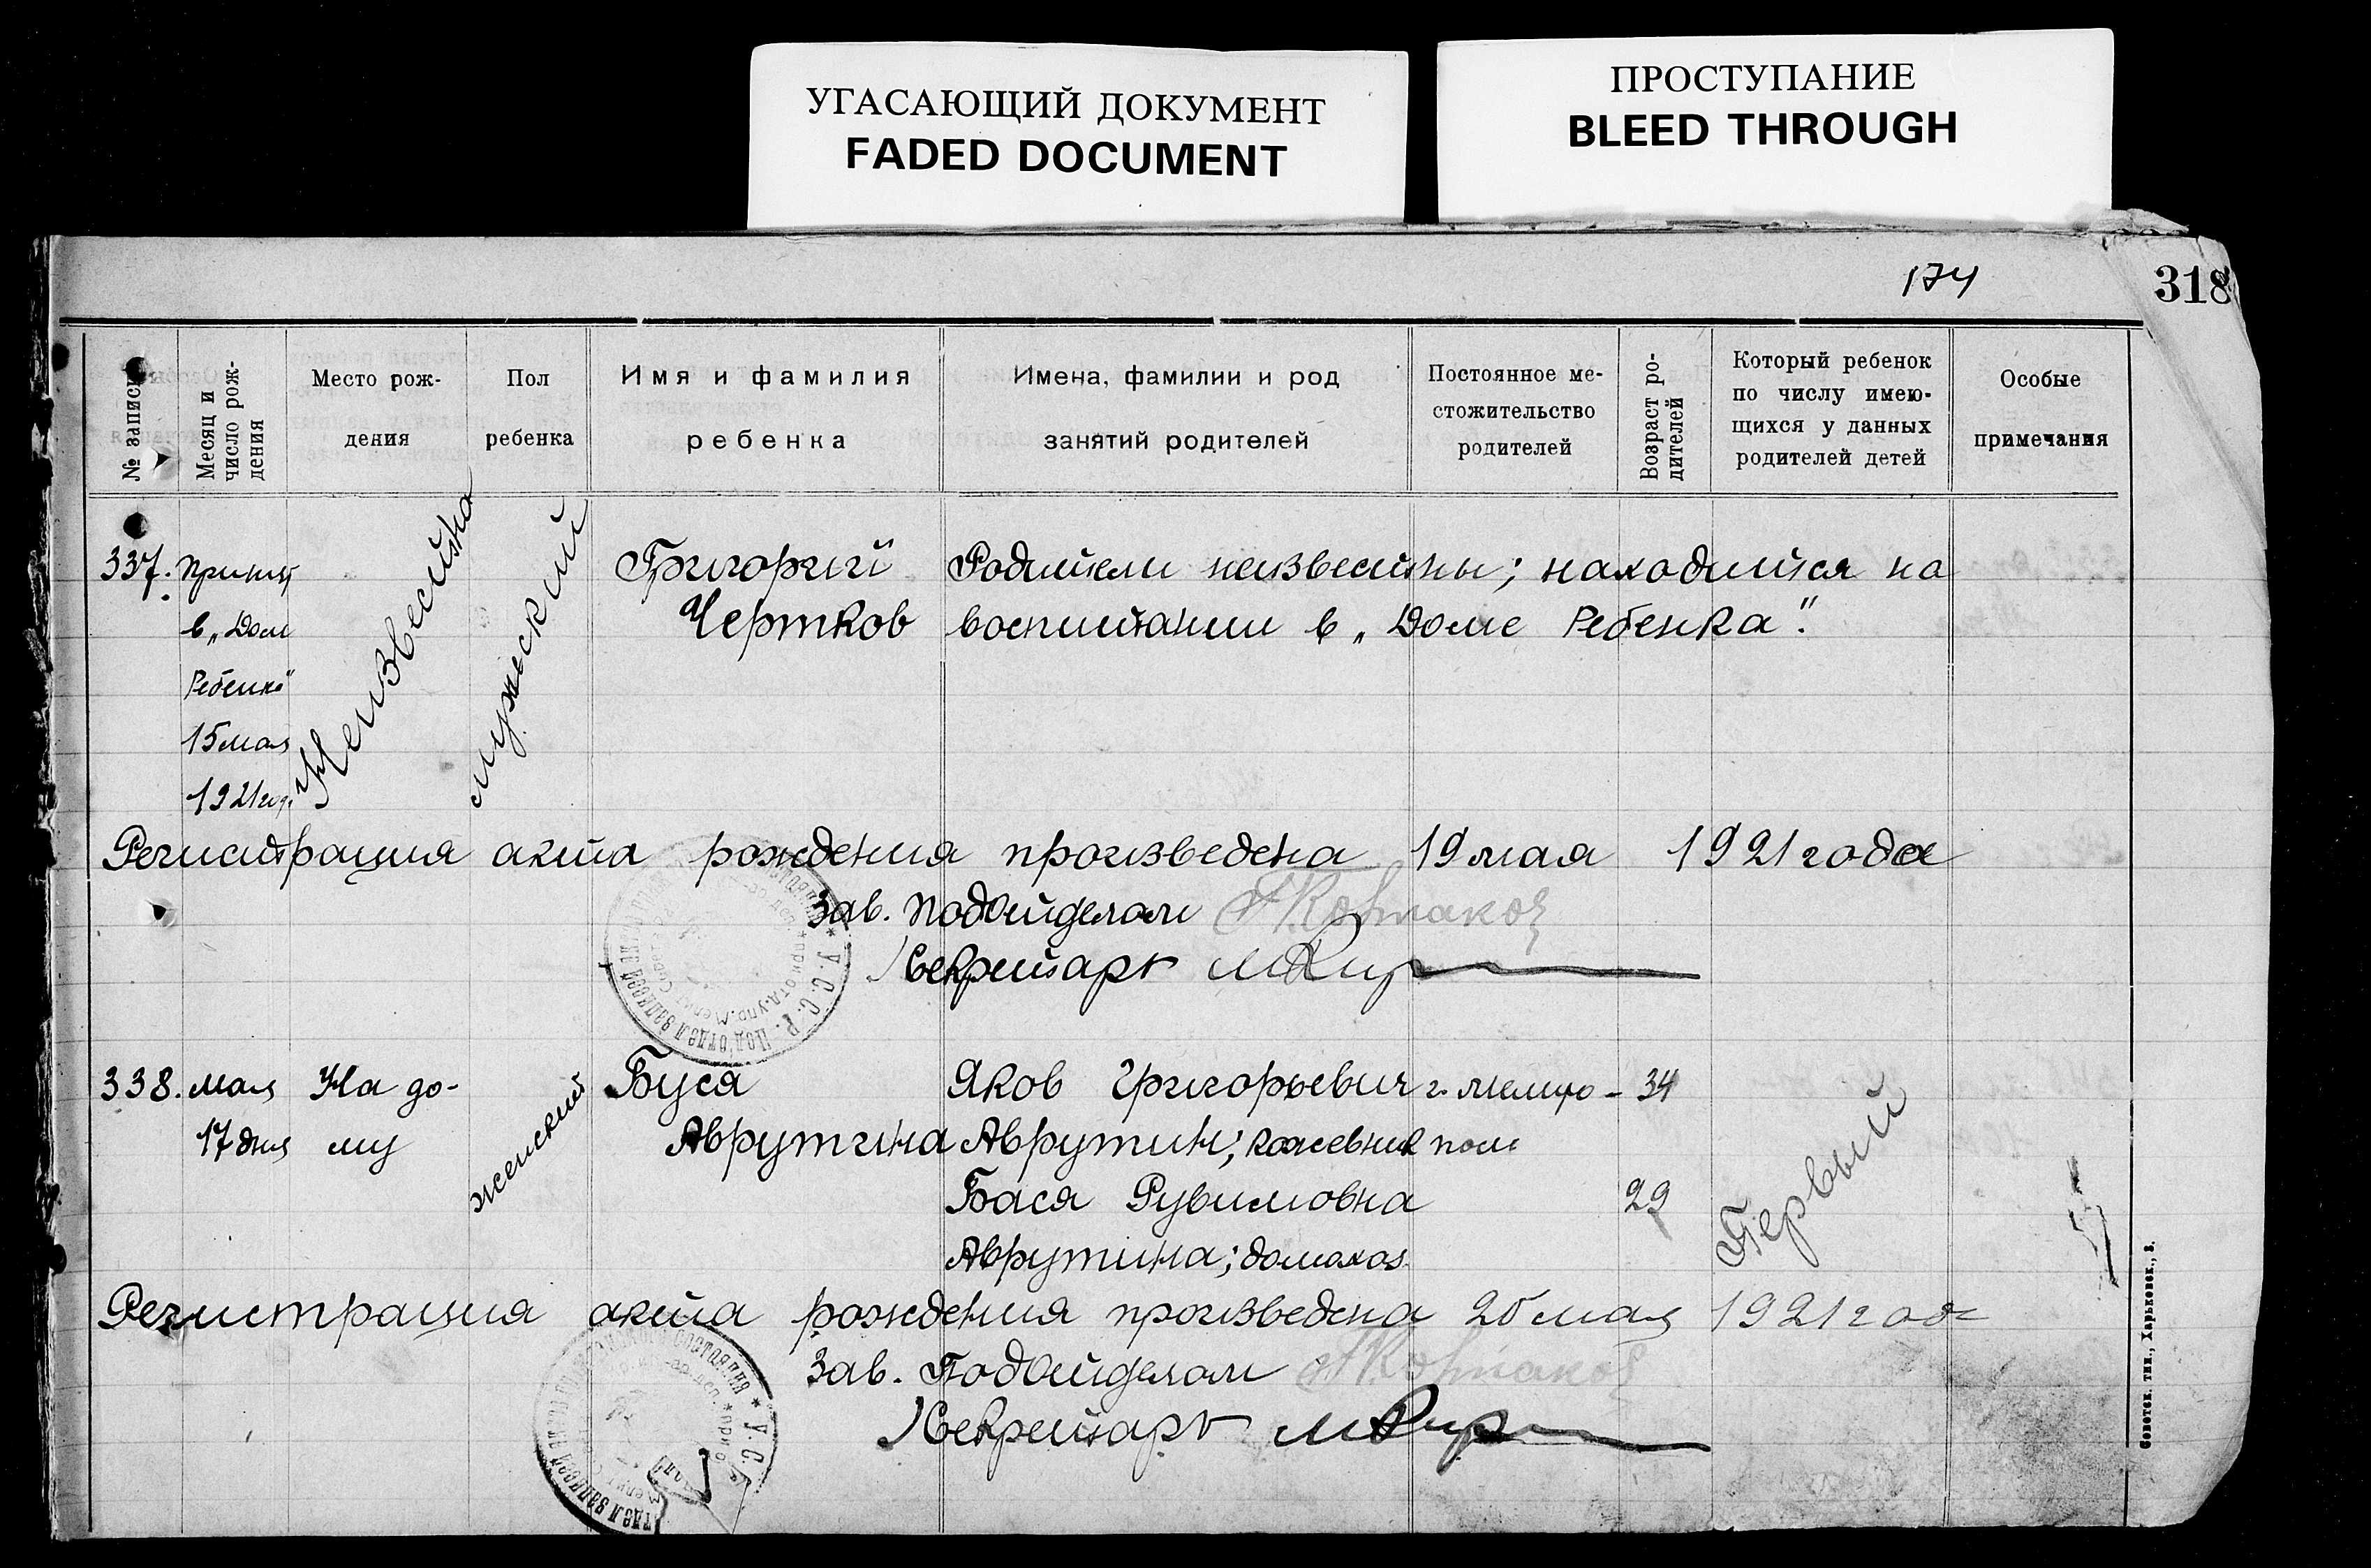 УГАСАЮЩИЙ ДОКУМЕНТ
FADED DOCUMENT
ПРОСТУПАНИЕ
BLEED THROUGH
174
318
№ записи
Месяц и число рождения
Место рож-
дения
Пол
ребенка
Имя и фамилия
ребенка
Имена, фамилии и род
занятий родителей
Постоянное ме-
стожительство
родителей
Возраст ро-
дителей
Который ребенок
по числу имею-
щихся у данных
родителей детей
Особые
примечания
337. Принят
в „Дом
Ребенка"
15 мая
1921 год.
Неизвестно
мужеский
Григорий
Чертков
Родители неизвестны; находится на
воспитании в „Доме Ребенка".
Регистрация акта рождения произведена 19 мая 1921 года
Зав. Подотделом
Секретарь
338. мая
17 дня
На до-
му
женский
Буся
Аврутина
Яков Григорьевич
Аврутин; кожевник
Бася Рувимовна
Аврутина; домохоз.
г. Мелито-
поле
34
29
Первый
Регистрация акта рождения произведена 20 мая 1921 года
Зав. Подотделом
Секретарь
У. С. С. Р. Подотдел записей
Советск. тип., Харьковск., 3.